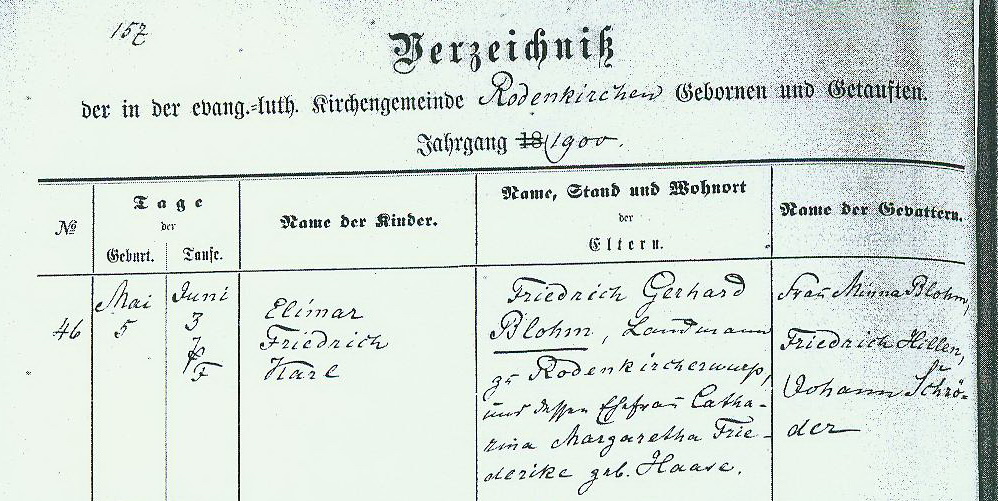 157
Verzeichniß
der in der evang.-luth. Kirchengemeinde Rodenkirchen Gebornen und Getauften.
Jahrgang 18 1900.
№
Tage
der
Geburt. Taufe.
Name der Kinder.
Name, Stand und Wohnort
der
Eltern.
Name der Gevattern.
46
Mai
5
Juni
3
Elimar
Friedrich
Karl
Friedrich Gerhard
Blohm, Landmann
zu Rodenkircherwurp,
und dessen Ehefrau Catha-
rina Margaretha Frie-
derike geb. Haase.
Frau Minna Blohm,
Friedrich Hillen,
Johann Schrö-
der